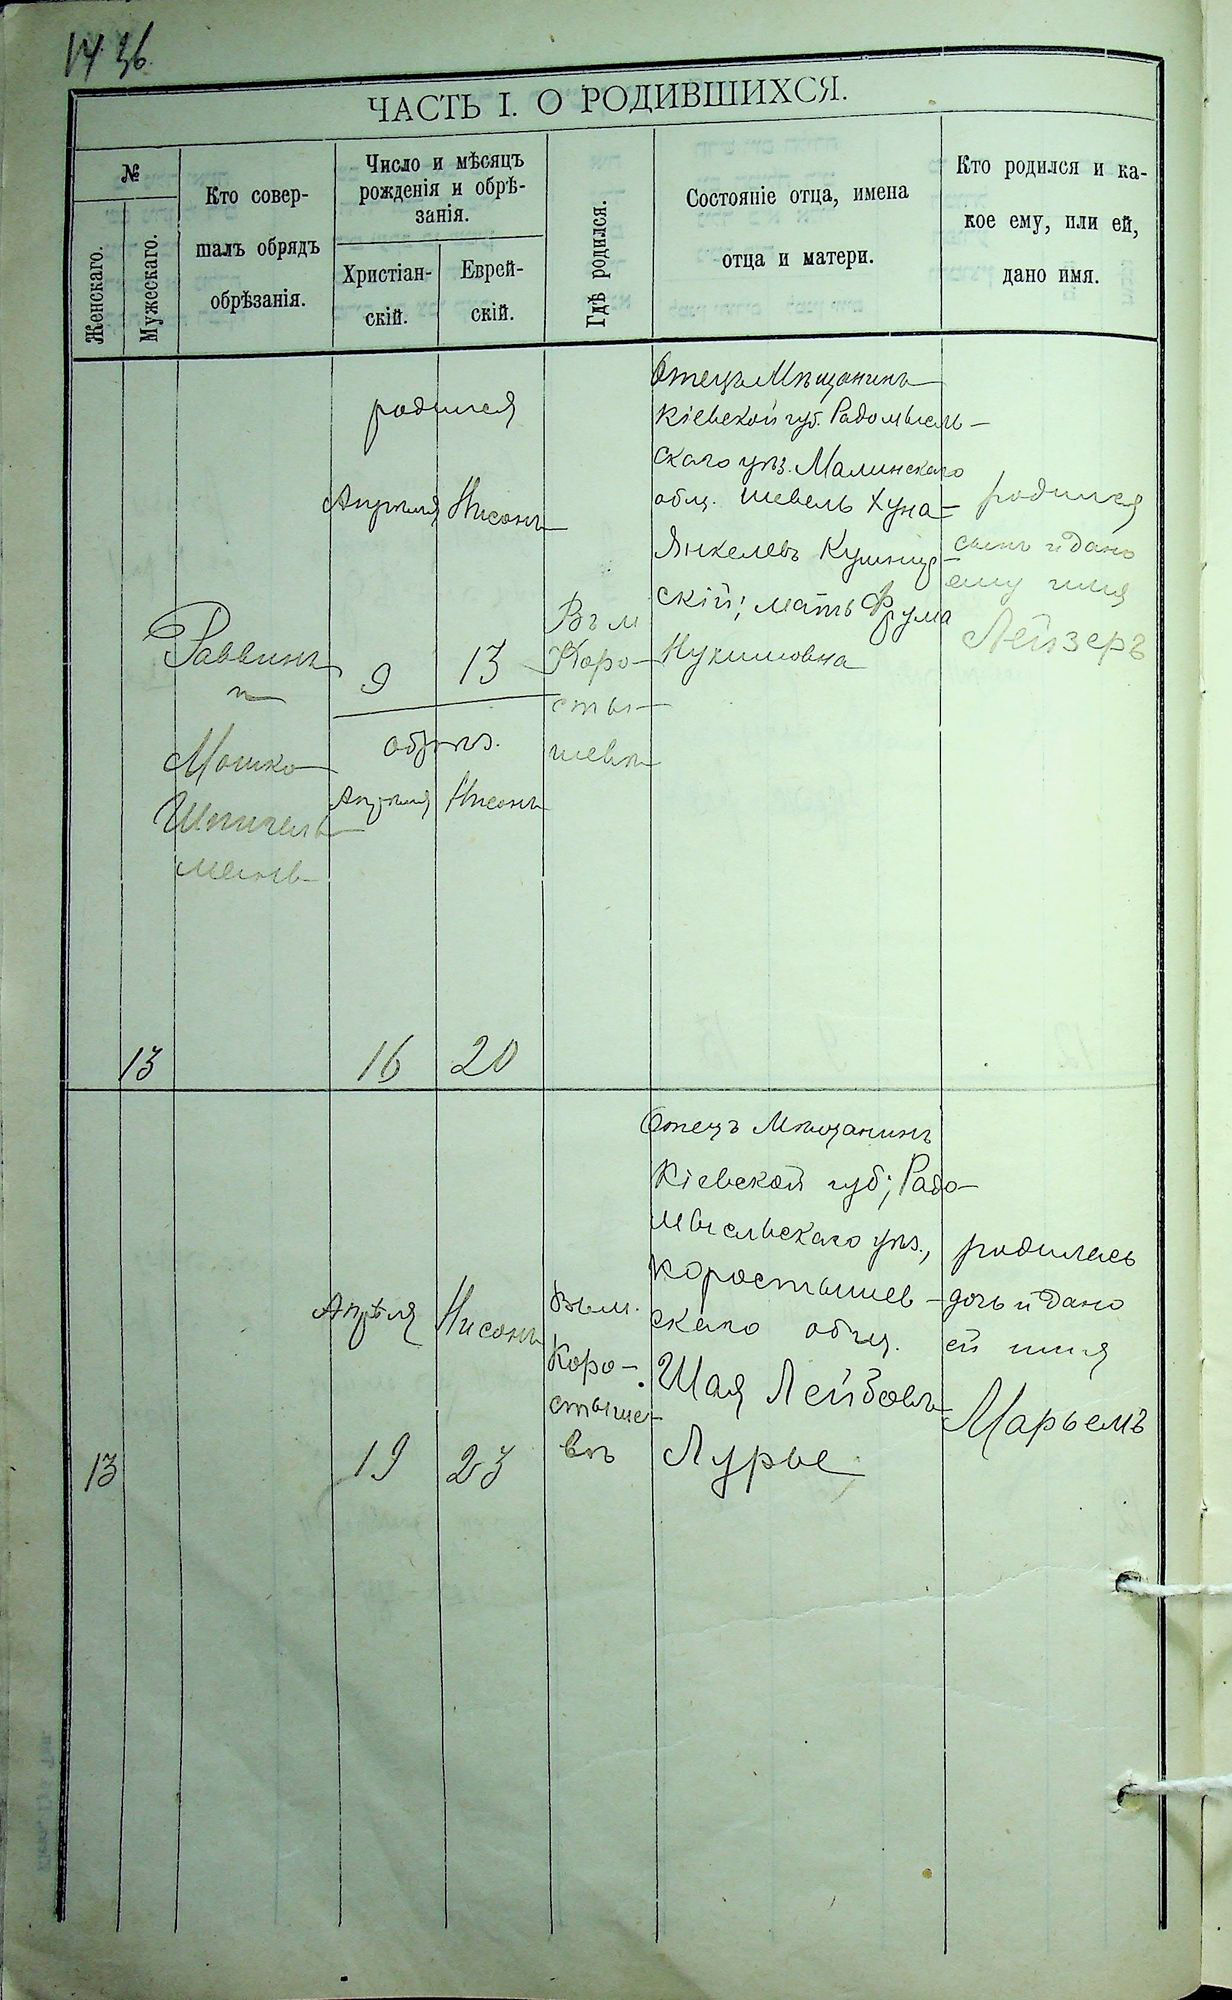 36
ЧАСТЬ I. О РОДИВШИХСЯ.
№
Женскаго.
Мужескаго.
Кто совер-
шалъ обрядъ
обрѣзанія.
Число и мѣсяцъ
рожденія и обрѣ-
занія.
Христіан-
скій.
Еврей-
скій.
Гдѣ родился.
Состояніе отца, имена
отца и матери.
Кто родился и ка-
кое ему, или ей,
дано имя.
13
Раввинъ
и
Мошко
Шпигель
манъ
родился
Апрѣля Нисонъ
9 13
обрѣз.
Апрѣля Нисонъ
16 20
Въ м
Коро-
сты-
шевѣ
Отецъ Мѣщанинъ
Кіевской губ. Радомысль-
скаго уѣз. Малинскаго
общ. Шевель Хуна-
Янкелевъ Кушнир-
скій; мать Фрума
Нухимовна
родился
сынъ и дано
ему имя
Лейзеръ
13
Апрѣля Нисонъ
19 23
Въ м.
Коро-
стыше-
вѣ
Отецъ Мѣщанинъ
Кіевской губ; Радо-
мысльскаго уѣз.,
Коростышев-
скаго общ.
Шая Лейбовъ
Лурье
родилась
дочь и дано
ей имя
Марьемъ